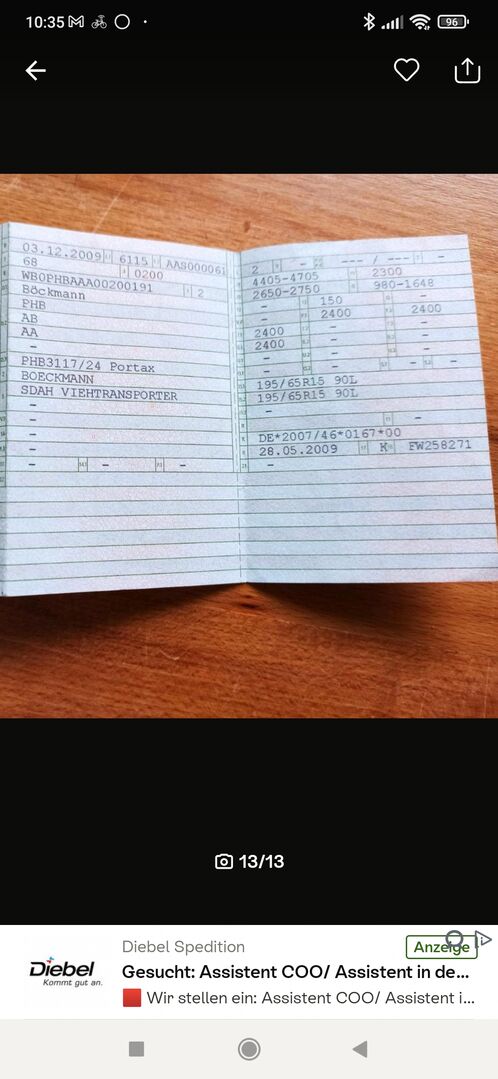 10:35
96
03.12.2009 6115 AAS000061
68 0200
WB0PHBAAA00200191 2
Böckmann
PHB
AB
AA
-
PHB3117/24 Portax
BOECKMANN
SDAH VIEHTRANSPORTER
-
-
-
-
- - -
2 - --- / --- -
4405-4705 2300
2650-2750 980-1648
- 150 -
- 2400 2400
2400 - -
2400 - -
- - - - -
195/65R15 90L
195/65R15 90L
-
- -
DE*2007/46*0167*00
28.05.2009 K FW258271
-
13/13
Diebel Spedition
Anzeige
Diebel
Kommt gut an.
Gesucht: Assistent COO/ Assistent in de...
Wir stellen ein: Assistent COO/ Assistent i...